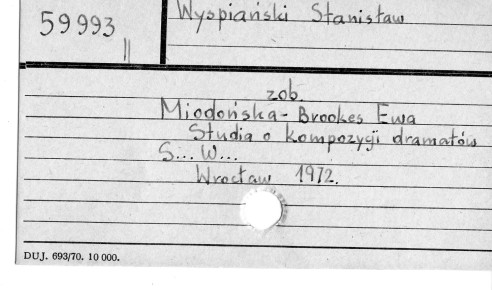 59993
II
Wyspiański Stanisław
zob.
Miodońska-Brookes Ewa
Studia o kompozycji dramatów
S... W...
Wrocław 1972.
DUJ. 693/70. 10 000.